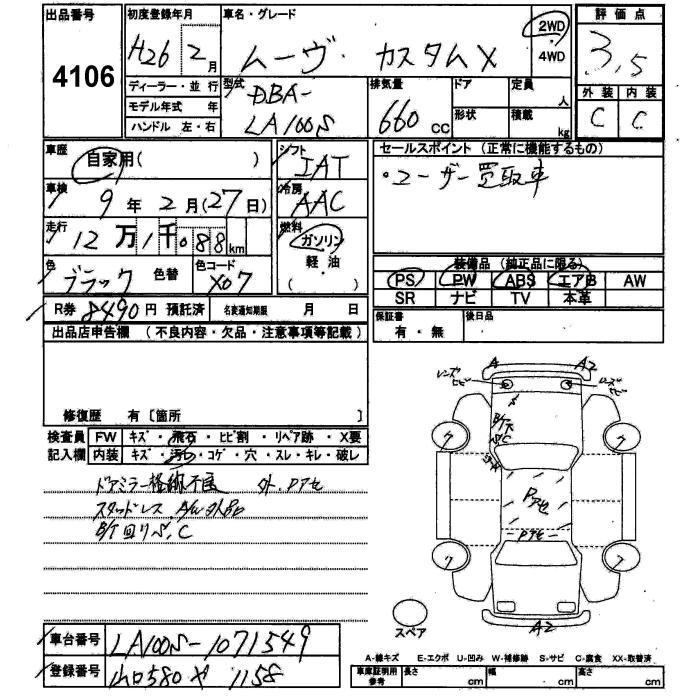 出品番号
4106
初度登録年月
H26年 2月
ディーラー・並行
モデル年式 年
ハンドル 左・右
車名・グレード
ムーヴ カスタムX
2WD
4WD
型式
DBA-
LA100S
排気量
660 cc
ドア
形状
定員 人
積載 kg
評価点
3.5
外装 内装
C C
車歴
自家用( )
車検
9年 2月(27日)
走行
12万1千088km
色
ブラック 色替
色コード
X07
シフト
IAT
冷房
AAC
燃料
ガソリン
軽・油
( )
セールスポイント (正常に機能するもの)
・ユーザー買取車
装備品 (純正品に限る)
PS PW ABS エアB AW
SR ナビ TV 本革
保証書
有・無
後日品
R券 8490円 預託済 名変通知期限 月 日
出品店申告欄 (不良内容・欠品・注意事項等記載)
修復歴 有〔箇所 〕
検査員 FW キズ・飛石・ヒビ割・リペア跡・X要
記入欄 内装 キズ・汚れ・コゲ・穴・スレ・キレ・破レ
ドアミラー格納不良 外.Pアセ
スタッドレス
B/T回りS,C
A A2
レンズヒビ
レンズヒビ
B/T
S/C
Pアセ
-Pアセ-
A2
スペア
車台番号
LA100S-1071549
登録番号
山口580 や 1158
A-線キズ E-エクボ U-凹み W-補修跡 S-サビ C-腐食 XX-取替済
車庫証明用
参考
長さ cm 幅 cm 高さ cm